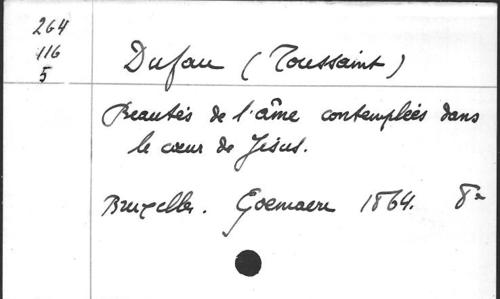 264
116
5
Dufau (Toussaint)
Beautés de l'âme contemplées dans
le cœur de Jésus.
Bruxelles. Goemaere 1864. 8°